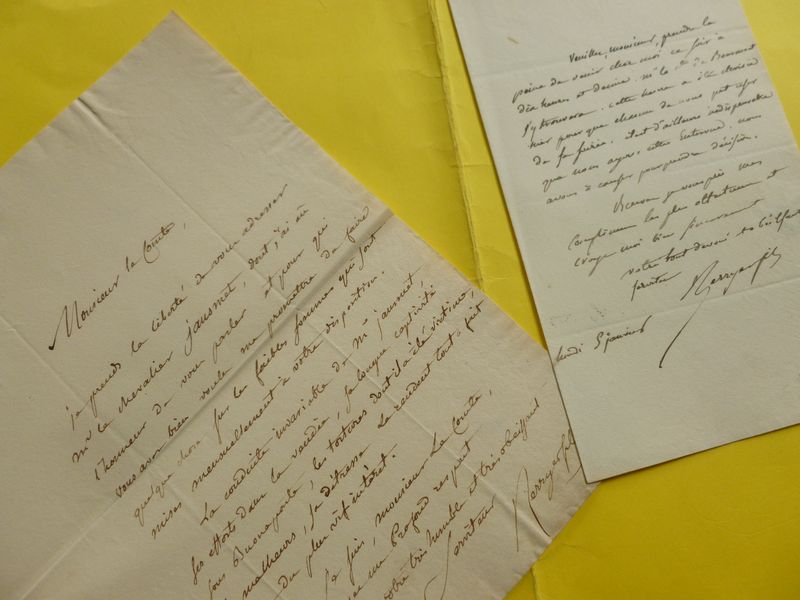 Monsieur le Comte,
je prends la liberté de vous adresser
Mr le chevalier Jausmet, dont j'ai eu
l'honneur de vous parler et pour qui
vous avez bien voulu me promettre de faire
quelque chose sur les faibles sommes qui sont
mises mensuellement à votre disposition.
La conduite invariable de Mr Jausmet
ses efforts dans la vendée, sa longue captivité
sous Buonaparte, les tortures dont il a été victime,
malheurs, sa détresse le rendent tout à fait
du plus vif intérêt.
Je suis, monsieur Le Comte,
un Profond respect
votre très humble et très obéissant
Serviteur
Berryer fils
Veuillez, monsieur, prendre la
peine de venir chez moi ce soir à
dix heures et demie. Mr le
s'y trouvera. cette heure a été choisie
hier pour que chacun de nous put user
de sa soirée. étant d'ailleurs indispensable
que nous ayons cette Entrevue, nous
avons à causer pour prendre décision.
Recevez je vous prie mes
complimens les plus affectueux et
croyez moi bien sincèrement
votre tout dévoué
serviteur
Berryer fils
lundi 5 janvier